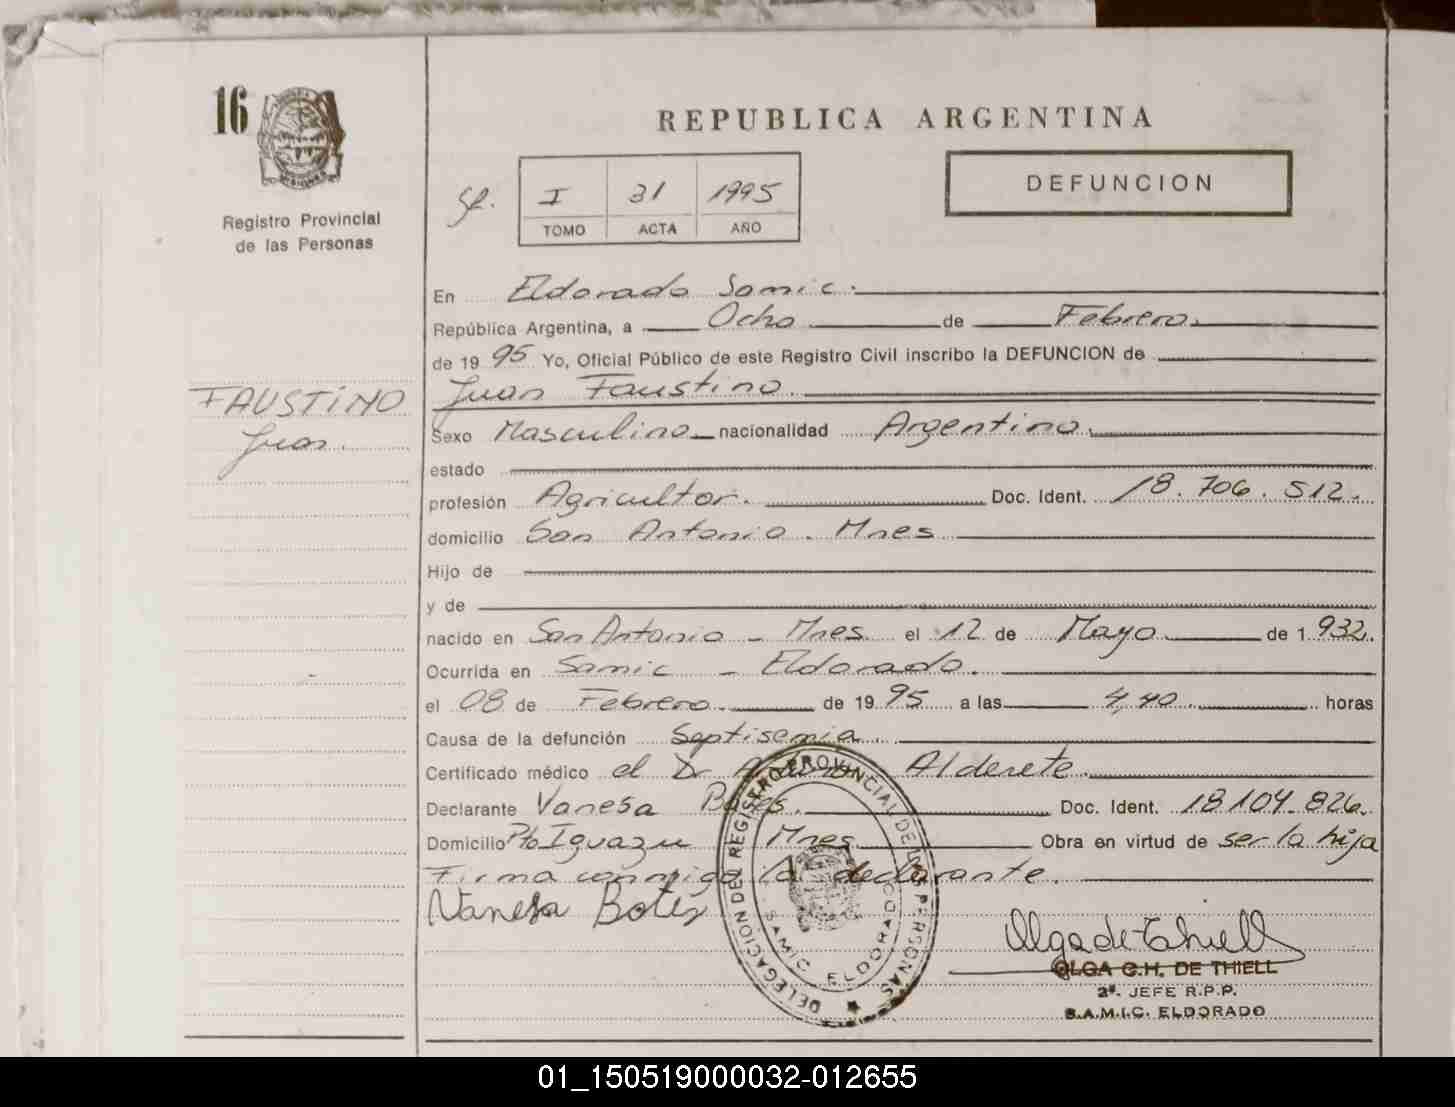 16
Registro Provincial
de las Personas
REPUBLICA ARGENTINA
DEFUNCION
I 31 1995
TOMO ACTA AÑO
En Eldorado Samic.
República Argentina, a Ocho de Febrero.
de 1995 Yo, Oficial Público de este Registro Civil inscribo la DEFUNCION de
Juan Faustino
FAUSTINO
Juan.
Sexo Masculino nacionalidad Argentino.
estado
profesión Agricultor. Doc. Ident. 18.706.512.
domicilio San Antonio. Mnes
Hijo de
y de
nacido en San Antonio - Mnes el 12 de Mayo de 1.932.
Ocurrida en Samic - Eldorado.
el 08 de Febrero de 1995 a las 4,40 horas
Causa de la defunción Septisemia.
Certificado médico el Dr Alderete.
Declarante Vanesa Botes. Doc. Ident. 18.104.826.
Domicilio Pto Iguazu Mnes Obra en virtud de ser la hija
Firma conmigo la declarante.
Vanesa Botes
DELEGACION DEL REGISTRO PROVINCIAL DE LAS PERSONAS
SAMIC. ELDORADO
Olga de Thiell
OLGA C.H. DE THIELL
2ª. JEFE R.P.P.
S.A.M.I.C. ELDORADO
01_150519000032-012655